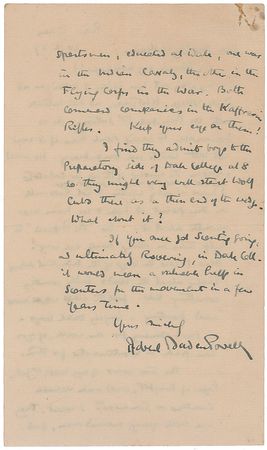 sportsmen, educated at Dale, one was
in the Indian Cavalry, the other in the
Flying Corps in the War. Both
command companies in the Kaffrarian
Rifles. Keep your eye on them!
I find they admit boys to the
Preparatory side of Dale College at 8
so they might very well start Wolf
Cubs there as a thin end of the wedge.
What about it?
If you once got Scouting going,
& ultimately Rovering, in Dale Coll.
it would mean a valuable help in
Scouters for the movement in a few
years time.
Yours sincerely
Robert Baden Powell